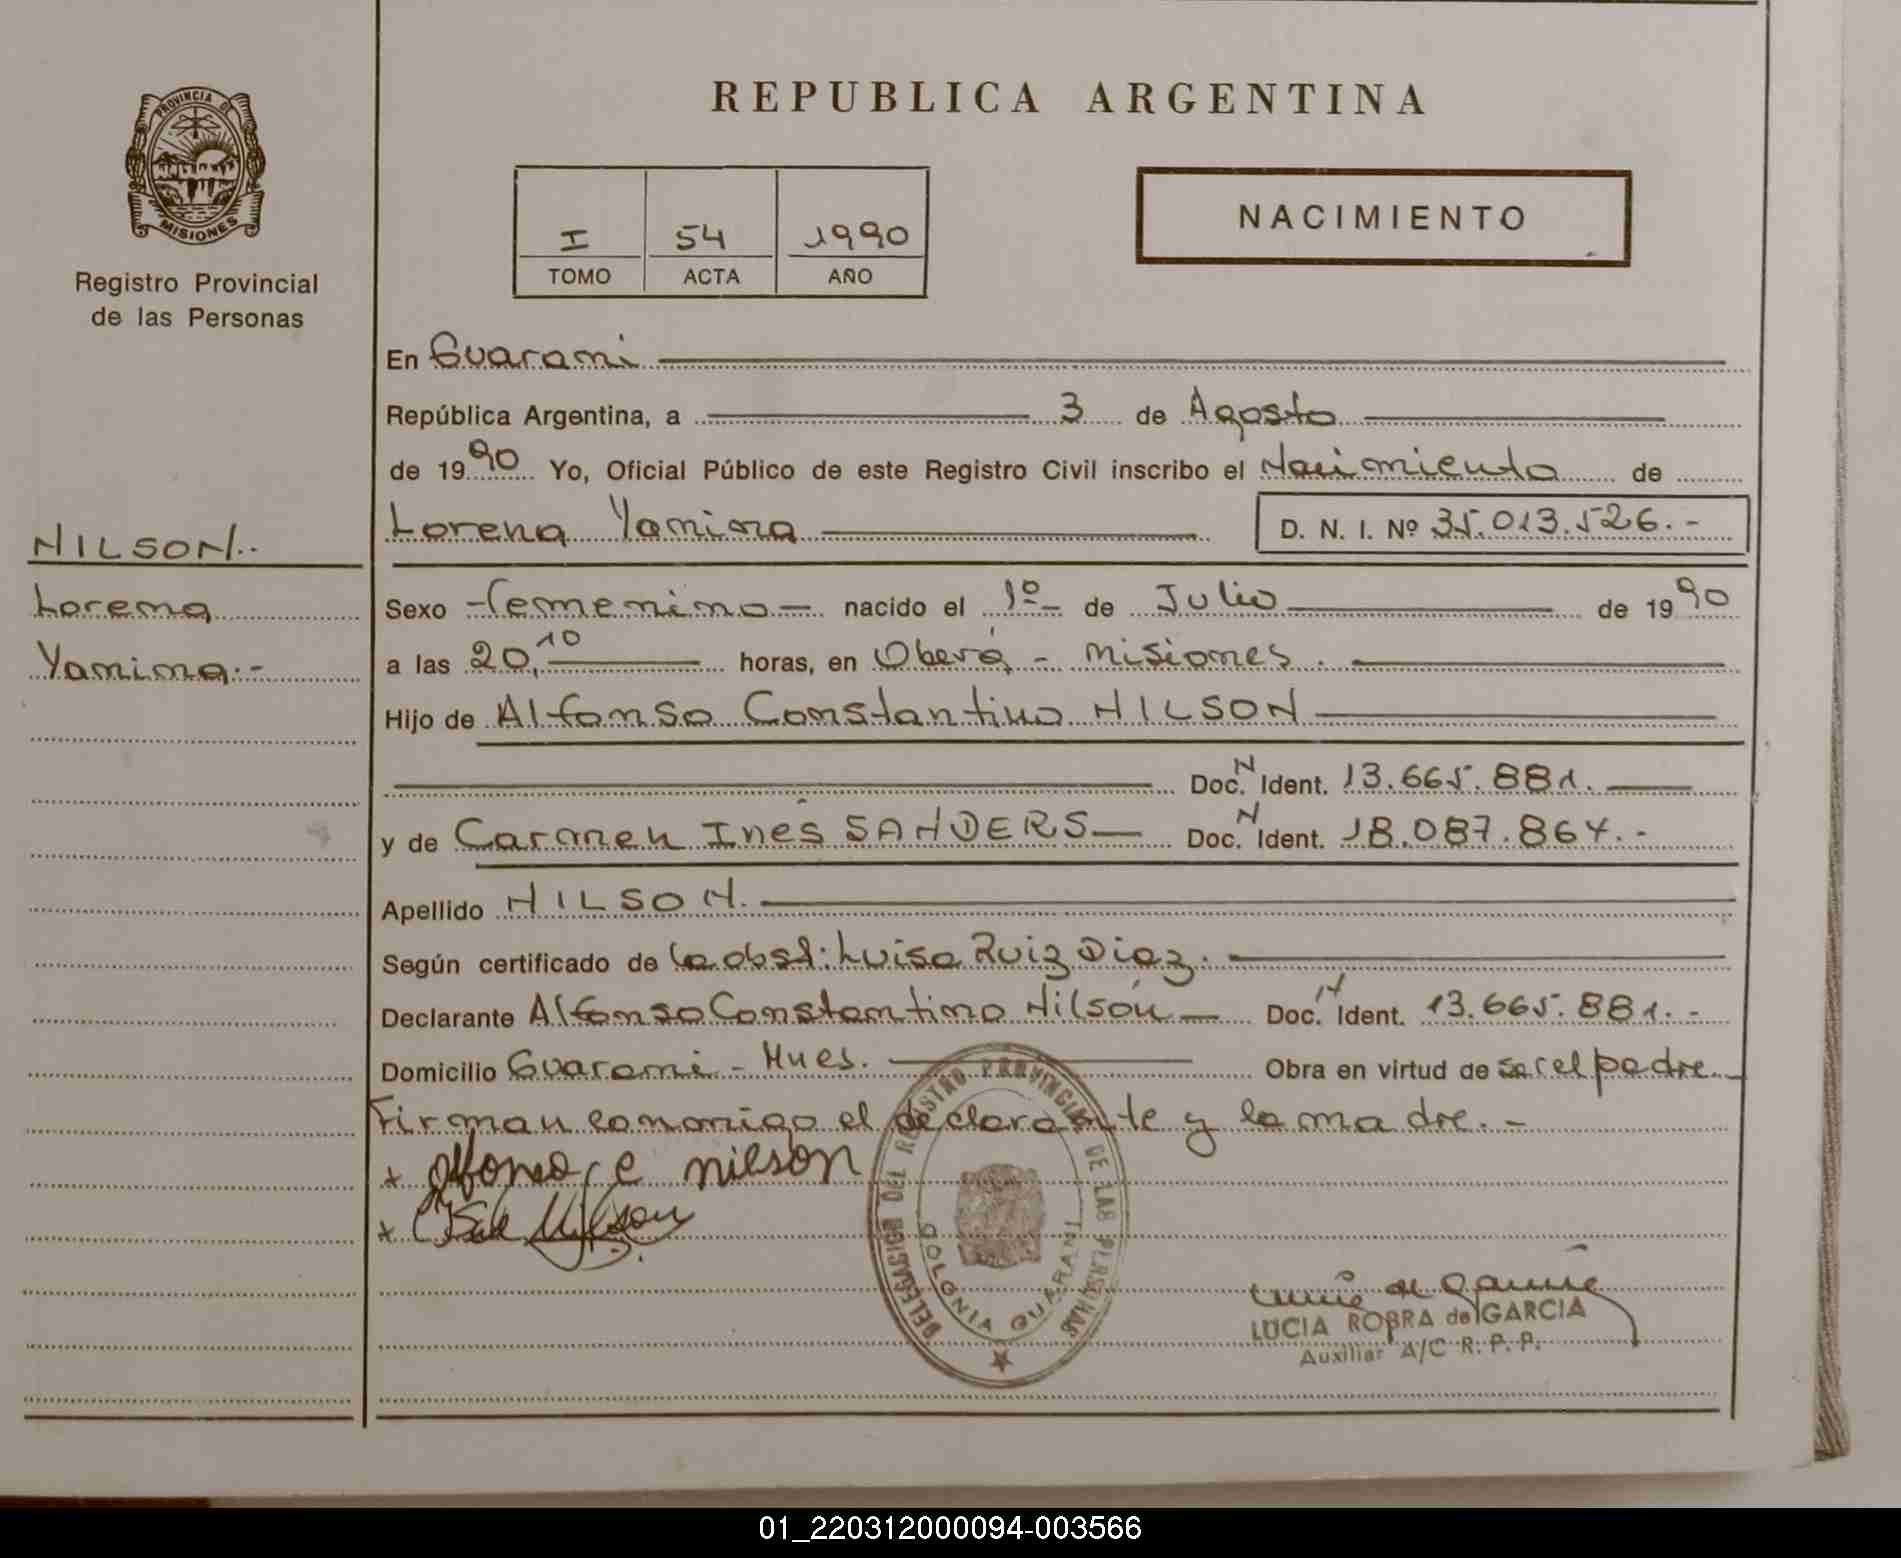 REPUBLICA ARGENTINA
PROVINCIA DE
MISIONES
Registro Provincial
de las Personas
I 54 1990
TOMO ACTA AÑO
NACIMIENTO
En Guarani
República Argentina, a 3 de Agosto
de 1990 Yo, Oficial Público de este Registro Civil inscribo el Nacimiento de
Lorena Yamina D. N. I. Nº 35.013.526.-
NILSON.-
Lorena
Yamina.-
Sexo Femenino nacido el 1º de Julio de 1990
a las 20,10 horas, en Oberá - Misiones.
Hijo de Alfonso Constantino NILSON
Doc. N Ident. 13.665.881.
y de Carmen Inés SANDERS Doc. N Ident. 18.087.864.-
Apellido NILSON.
Según certificado de la obst: Luisa Ruiz Diaz.
Declarante Alfonso Constantino Nilson Doc. N Ident. 13.665.881.-
Domicilio Guarani - Mnes. Obra en virtud de ser el padre.
Firman conmigo el declarante y la madre.-
x Alfonso C nilson
x
DELEGACION DEL REGISTRO PROVINCIAL DE LAS PERSONAS
COLONIA GUARANI
LUCIA ROBRA de GARCIA
Auxiliar A/C R. P. P.
01_220312000094-003566